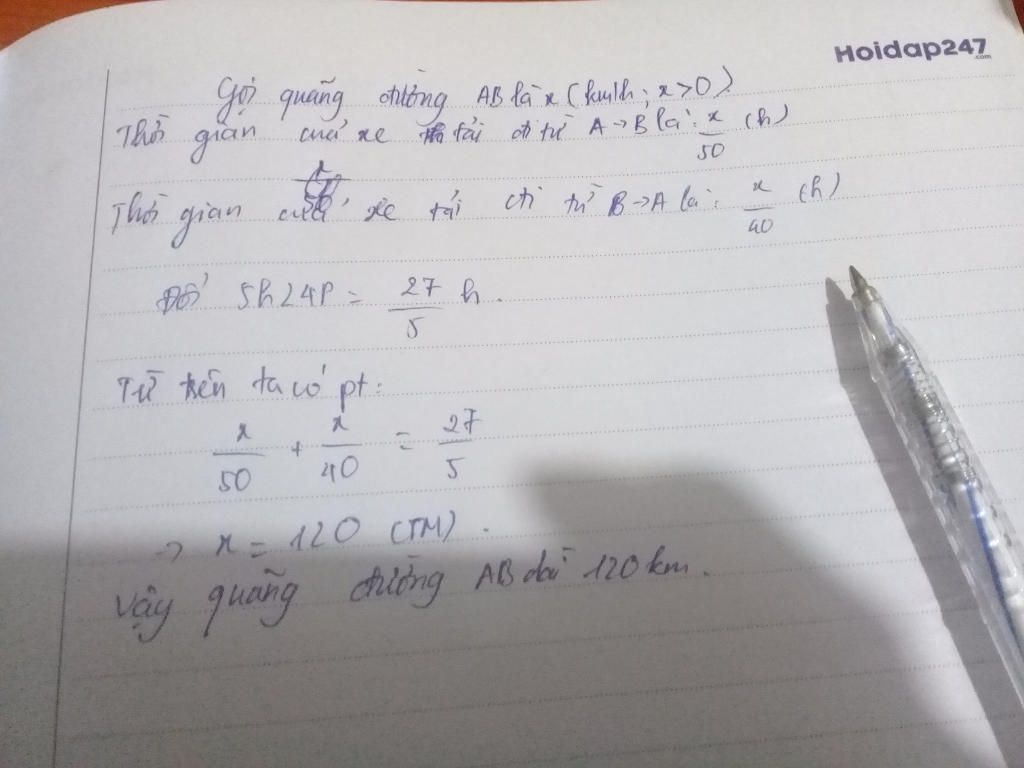 Hoidap247
.com
Gọi quãng đường AB là x (km/h; x>0)
Thời gian của xe tải đi từ A→B là: x/50 (h)
Thời gian của xe tải đi từ B→A là: x/40 (h)
Đổi 5h24p = 27/5 h.
Từ trên ta có pt:
x/50 + x/40 = 27/5
→ x = 120 (TM).
Vậy quãng đường AB dài 120km.